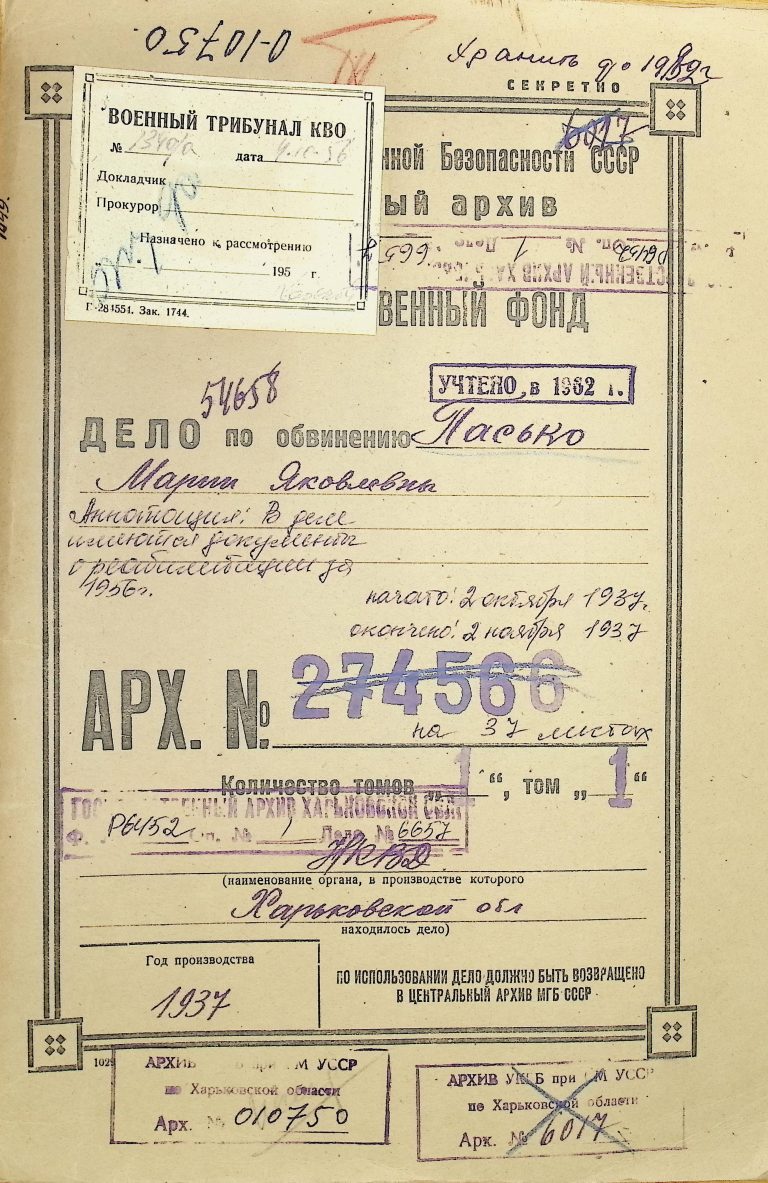 0-10750
Хранить до 1982г
СЕКРЕТНО
6017
ВОЕННЫЙ ТРИБУНАЛ КВО
№ дата
Докладчик
Прокурор
Назначено к рассмотрению
195 г.
Г-284551. Зак. 1744.
нной Безопасности СССР
ый архив
Р6452 Оп. № 1 Дело № 6657
СТВЕННЫЙ АРХИВ ХА
ВЕННЫЙ ФОНД
УЧТЕНО в 1962 г.
54658
ДЕЛО по обвинению Пасько
Марии Яковлевны
Аннотация: В деле
имеются документы
о реабилитации за
1956г.
начато: 2 октября 1937г.
окончено: 2 ноября 1937
АРХ. №. 274566
на 37 листах
Количество томов „1“, том „1“
ГОСУДАРСТВЕННЫЙ АРХИВ ХАРЬКОВСКОЙ ОБЛ
Ф. Р6452 Оп. № 1 Дело № 6657
НКВД
(наименование органа, в производстве которого
Харьковской обл
находилось дело)
Год производства
1937
ПО ИСПОЛЬЗОВАНИИ ДЕЛО ДОЛЖНО БЫТЬ ВОЗВРАЩЕНО
В ЦЕНТРАЛЬНЫЙ АРХИВ МГБ СССР
1029
АРХИВ при СМ УССР
по Харьковской области
Арх. № 010750
АРХИВ УКГБ при СМ УССР
по Харьковской области
Арх. № 6017